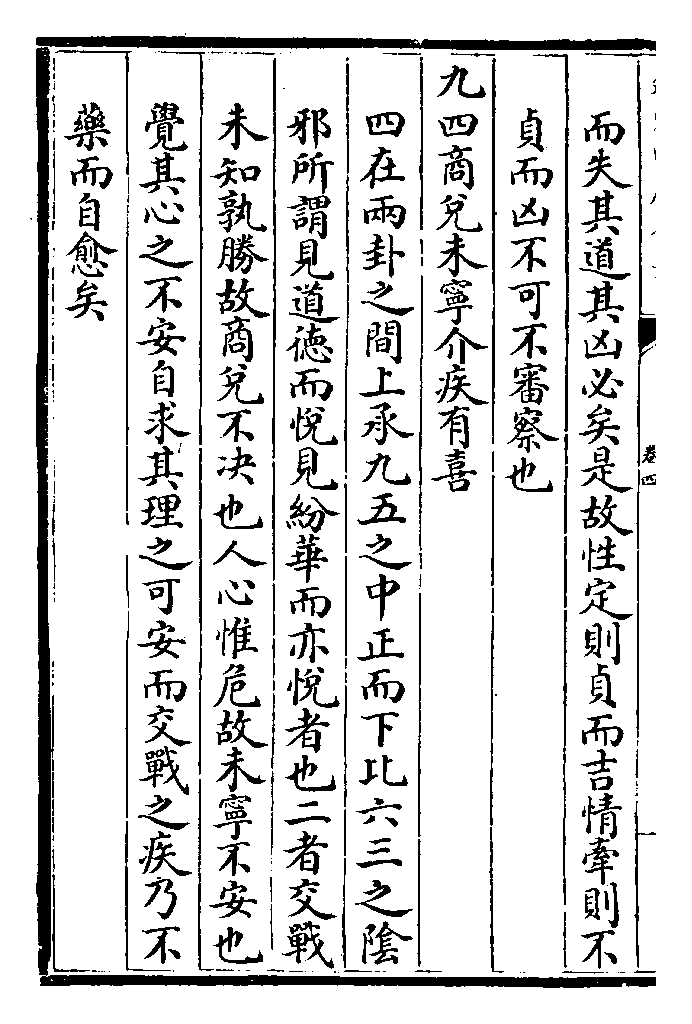 而失其道其凶必矣是故性定則貞而吉情牽則不
貞而凶不可不審察也
九四商兌未寧介疾有喜
四在兩卦之間上承九五之中正而下比六三之陰
邪所謂見道徳而悅見紛華而亦悅者也二者交戰
未知孰勝故商兌不决也人心惟危故未寧不安也
覺其心之不安自求其理之可安而交戰之疾乃不
藥而自愈矣
卷四